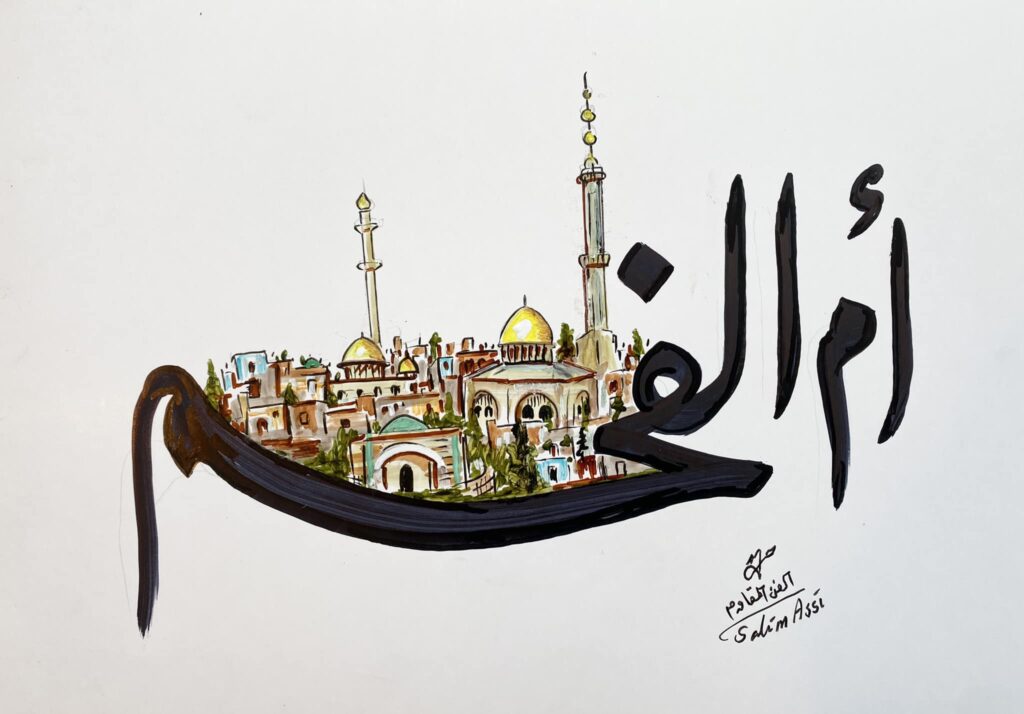 أم الفحم
الفن المقاوم
Salim Assi